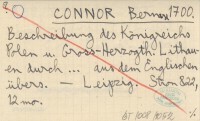 CONNOR Bernar 1700.
Beschreibung des Königreichs
Polen u. Gross-Herzogth. Litthau-
en durch ... aus dem Englischen
übers. — Leipzig. Strom 822,
12mo.